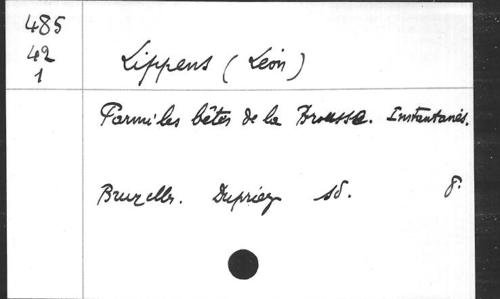 485
42
1
Lippens (Léon)
Parmi les bêtes de la Brousse. Instantanés.
Bruxelles. Dupriez sd. 8°.